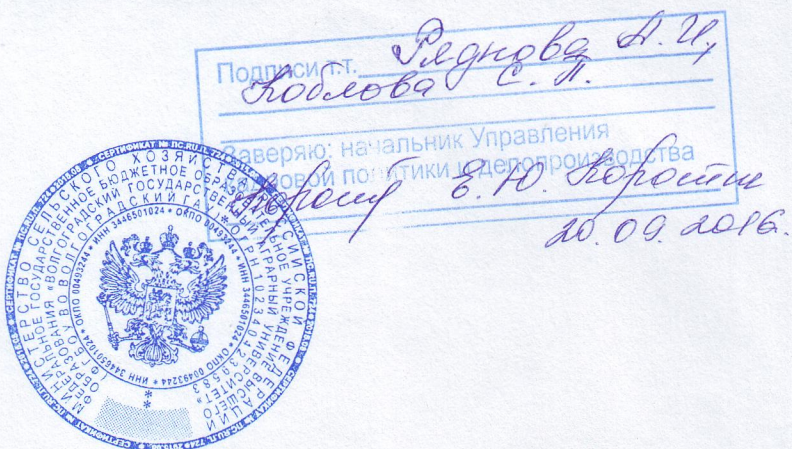 Подписи т.т. Ряднова А.И,
Коблова С.П.
Заверяю: начальник Управления
кадровой политики и делопроизводства
Е.Ю. Коротич
20.09.2016.
МИНИСТЕРСТВО СЕЛЬСКОГО ХОЗЯЙСТВА РОССИЙСКОЙ ФЕДЕРАЦИИ
ФЕДЕРАЛЬНОЕ ГОСУДАРСТВЕННОЕ БЮДЖЕТНОЕ ОБРАЗОВАТЕЛЬНОЕ УЧРЕЖДЕНИЕ ВЫСШЕГО
ОБРАЗОВАНИЯ «ВОЛГОГРАДСКИЙ ГОСУДАРСТВЕННЫЙ АГРАРНЫЙ УНИВЕРСИТЕТ»
(ФГБОУ ВО ВОЛГОГРАДСКИЙ ГАУ) * ОГРН 1023404239583
* ИНН 3446501024 * ОКПО 00493244 * ИНН 3446501024 * ОКПО 00493244 * ИНН 3446501024 * ОКПО 00493244